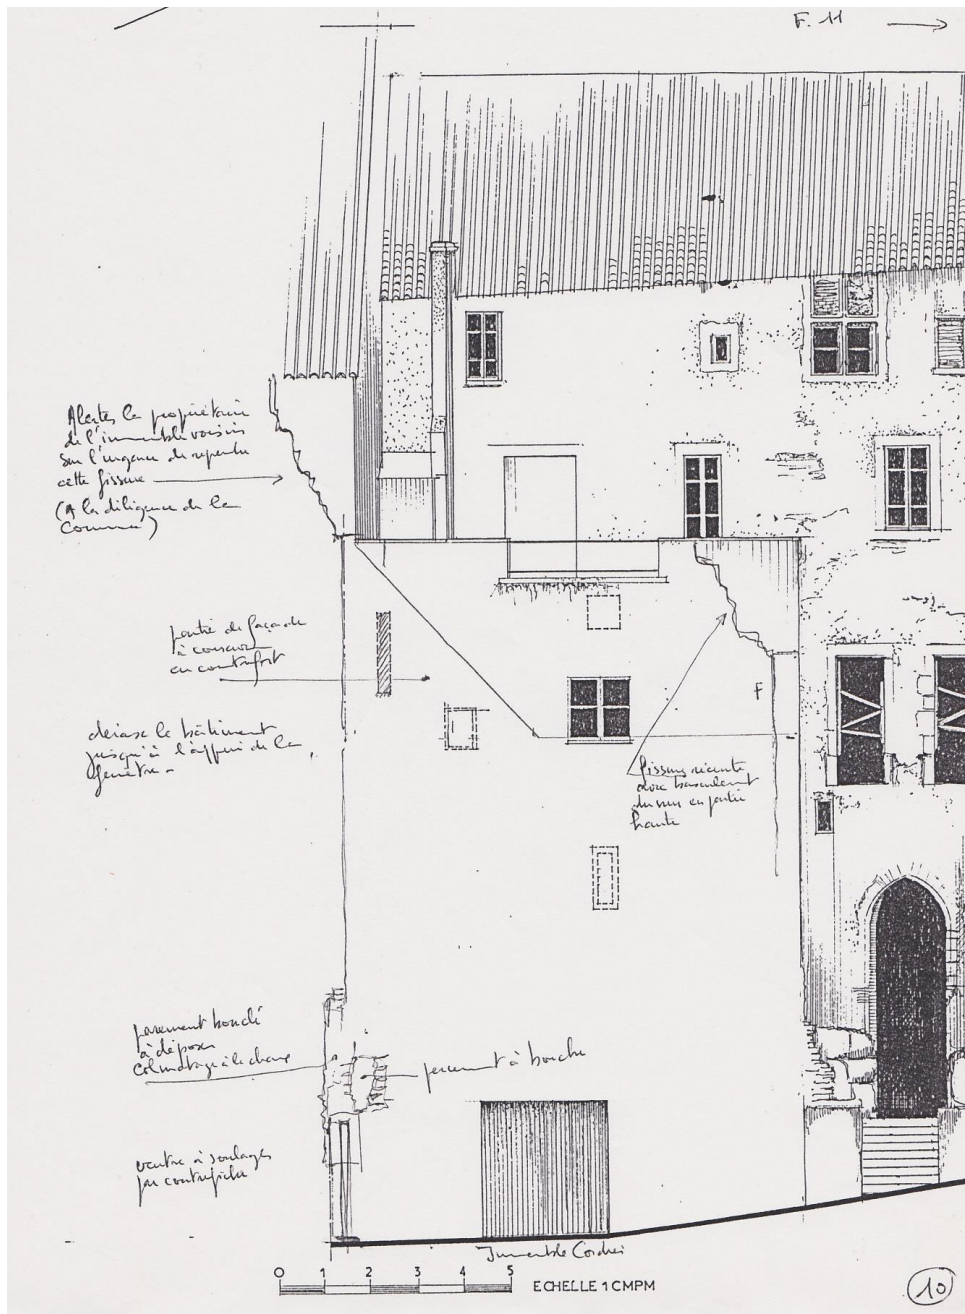 F. 11
Alerter le propriétaire
de l'immeuble voisin
sur l'urgence de reprendre
cette fissure
(A la diligence de la
Commune)
partie de façade
à conserver
en contrefort
déraser le bâtiment
jusqu'à l'appui de la
fenêtre -
F
fissure récente
avec basculement
du mur en partie
haute
parement bouclé
à déposer
colmatage à la chaux
percement à boucher
ventre à soulager
par contrefiche
Immeuble
0 1 2 3 4 5
ECHELLE 1 CMPM
10